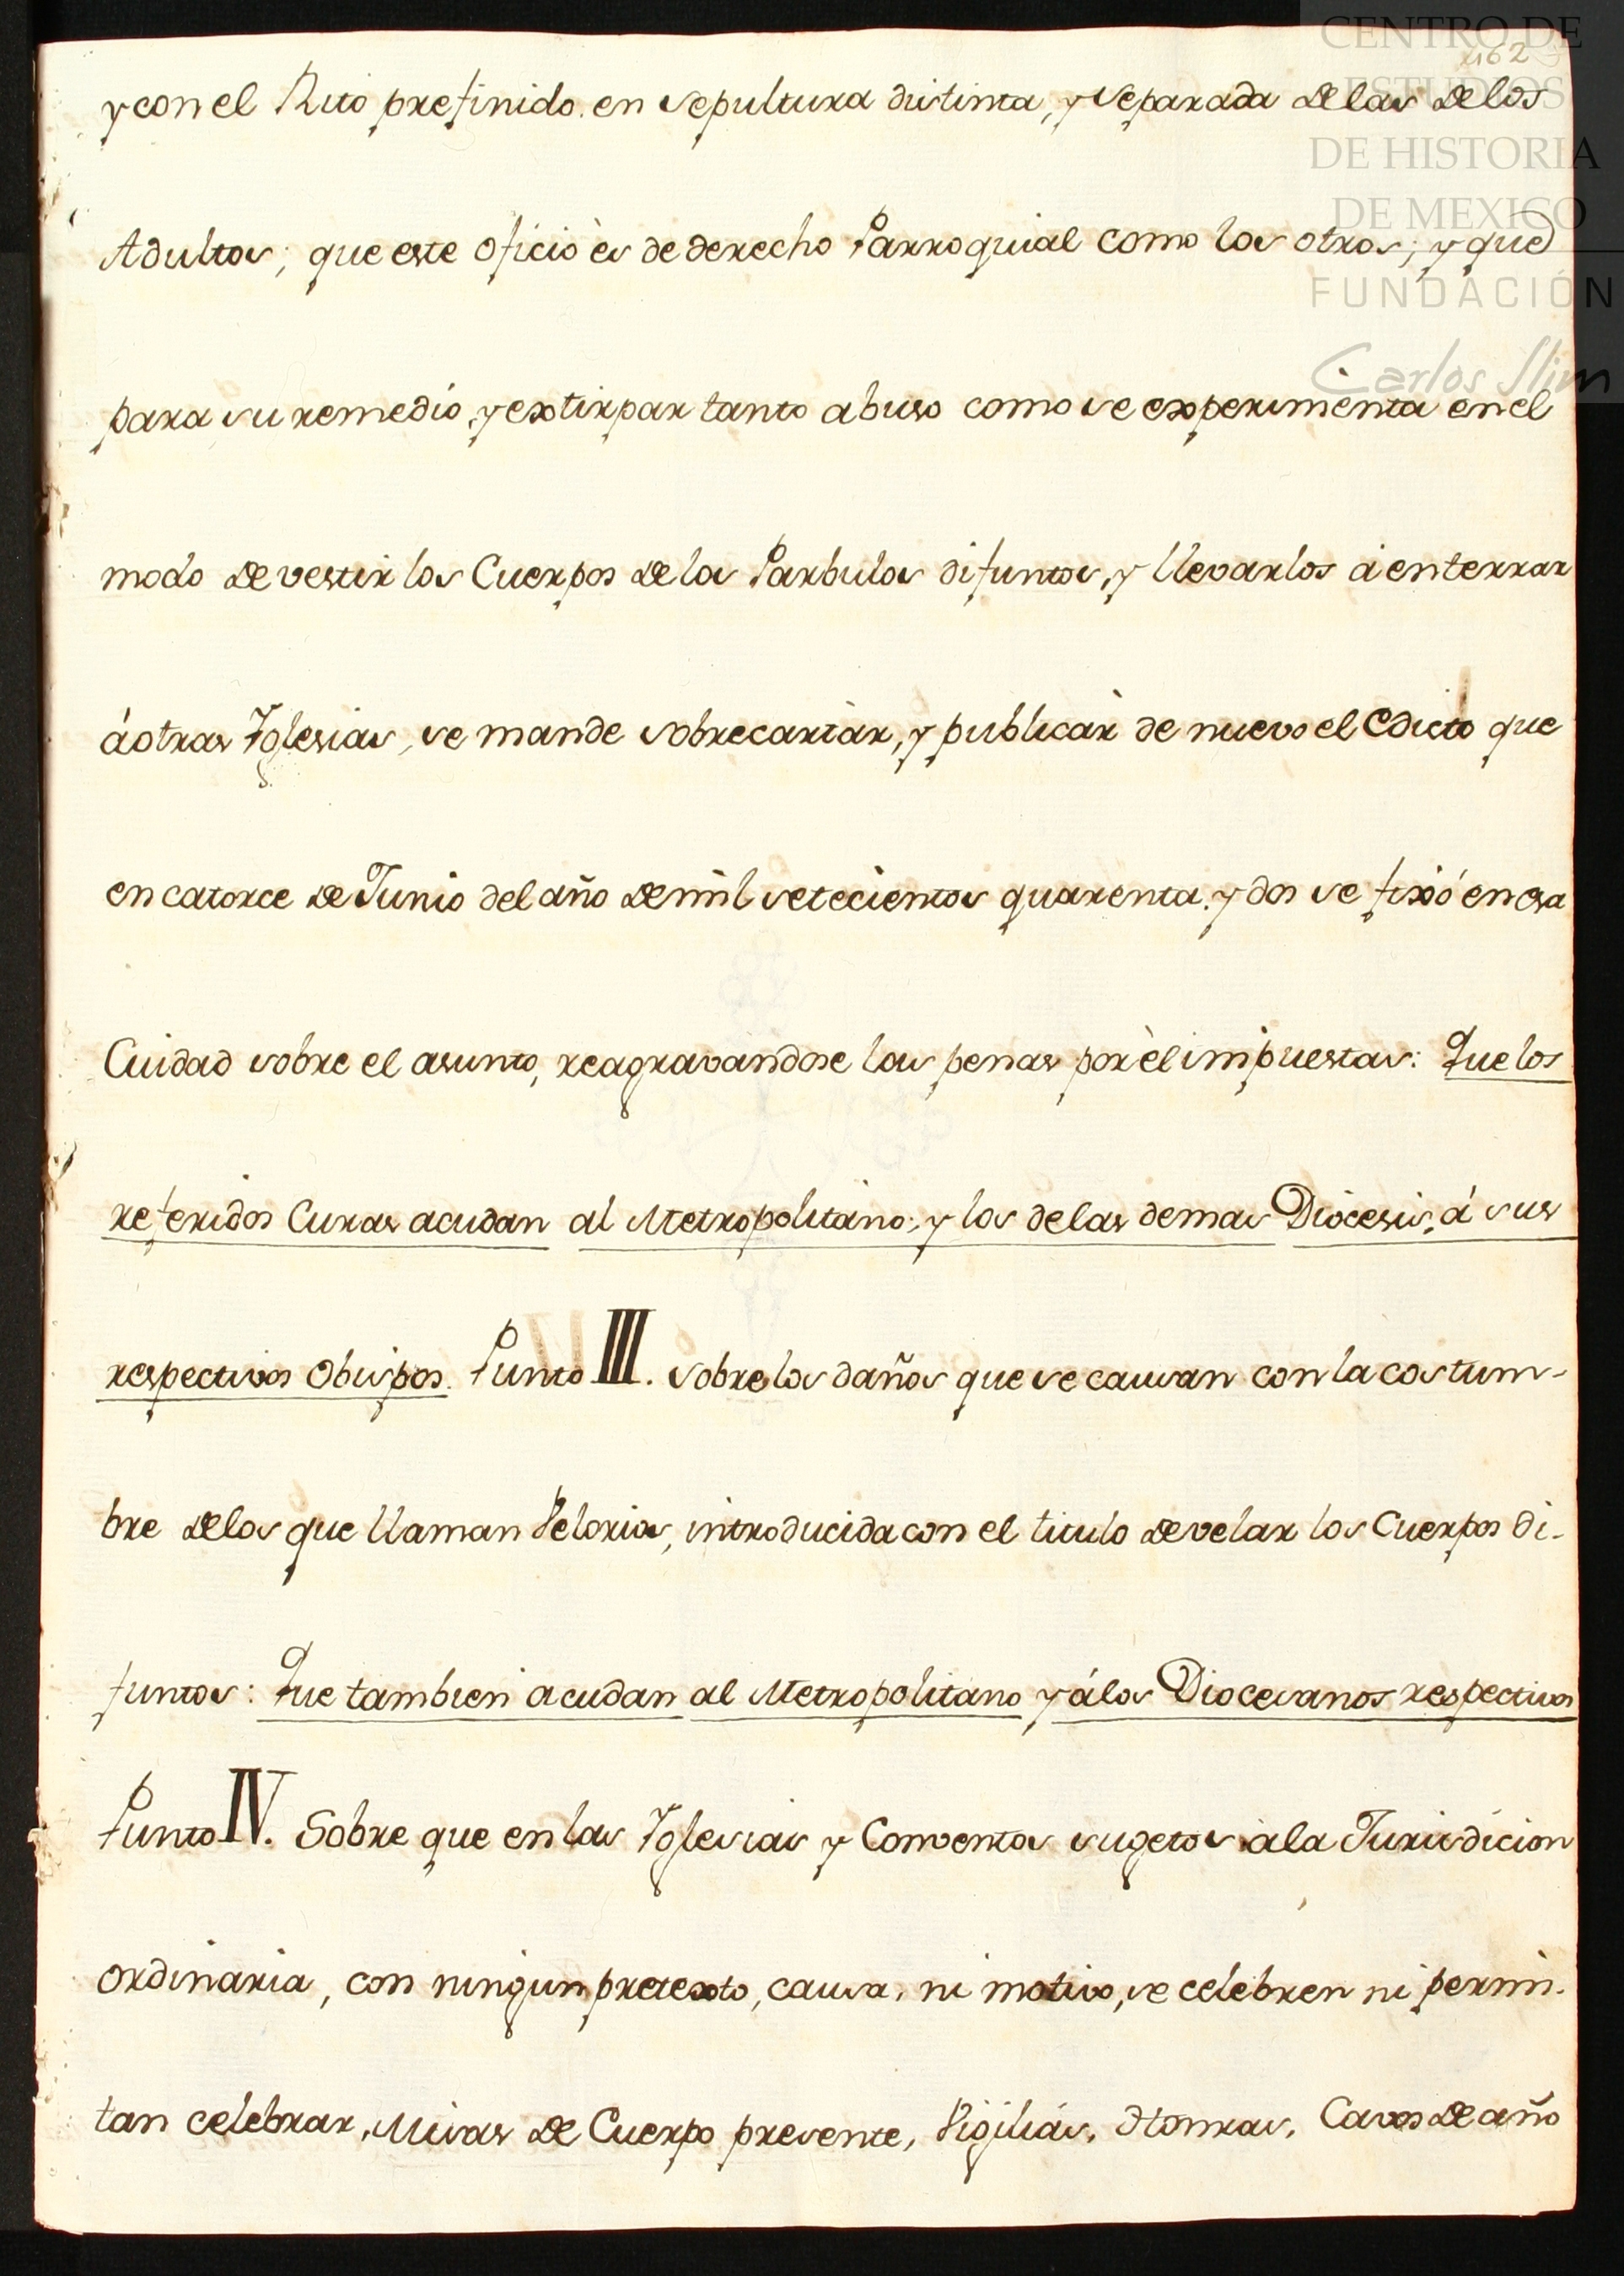 CENTRO DE
ESTUDIOS
DE HISTORIA
DE MEXICO
FUNDACIÓN
Carlos Slim
162
y con el Rito prefinido. en sepultura distinta, y separada de las de los
Adultos; que este oficio ès de derecho Parroquial como los otros; y que
para su remedio, y extirpar tanto abuso como se experimenta en el
modo de vestir los Cuerpos de los Parbulos difuntos, y llevarlos á enterrar
á otras Yglesias, se mande sobrecartàr, y publicàr de nuevo el Edicto que
en catorce de Junio del año de mil setecientos quarenta. y dos se fixó en esa
Cuidad sobre el asunto, reagravandose las penas por èl impuestas: Que los
referidos Curas acudan al Metropolitano; y los de las demas Diòcesis, á sus
respectivos Obispos. Punto III. sobre los daños que se causan con la costum-
bre de los que llaman Velorios, introducida con el titulo de velar los Cuerpos di-
funtos: Que tambien acudan al Metropolitano y á los Diocesanos respectivos
Punto IV. Sobre que en las Yglesias y Conventos sugetos á la Jurisdicion
ordinaria, con ningun pretexto, causa, ni motivo, se celebren ni permi-
tan celebrar, Misas de Cuerpo presente, Vigiliás, Honras, Cavos de año